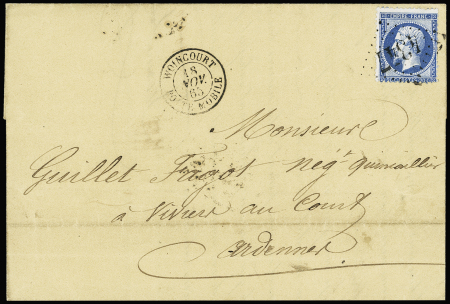 EMPIRE FRANC
WOINCOURT
18
AOU
65
BOITE MOBILE
Monsieur
Guillet Fagot Négt quincaillier
à Vivier au Court
Ardennes